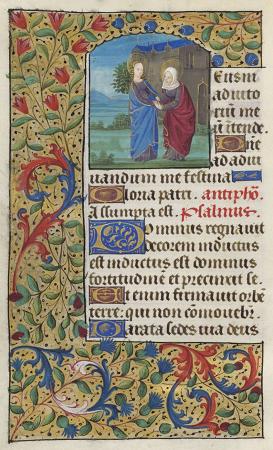 Eus in
adiuto
riũ me
ĩtende.
Dne
ad adiu
uandum me festina
Gloria patri. antipho.
Assumpta est. Psalmus.
Dominus regnauit
decorem indutus
est indutus est dominus
fortitudinẽ et precinxit se.
Et enim firmauit orbẽ
terre: qui non cõmouebi
Parata sedes tua deus